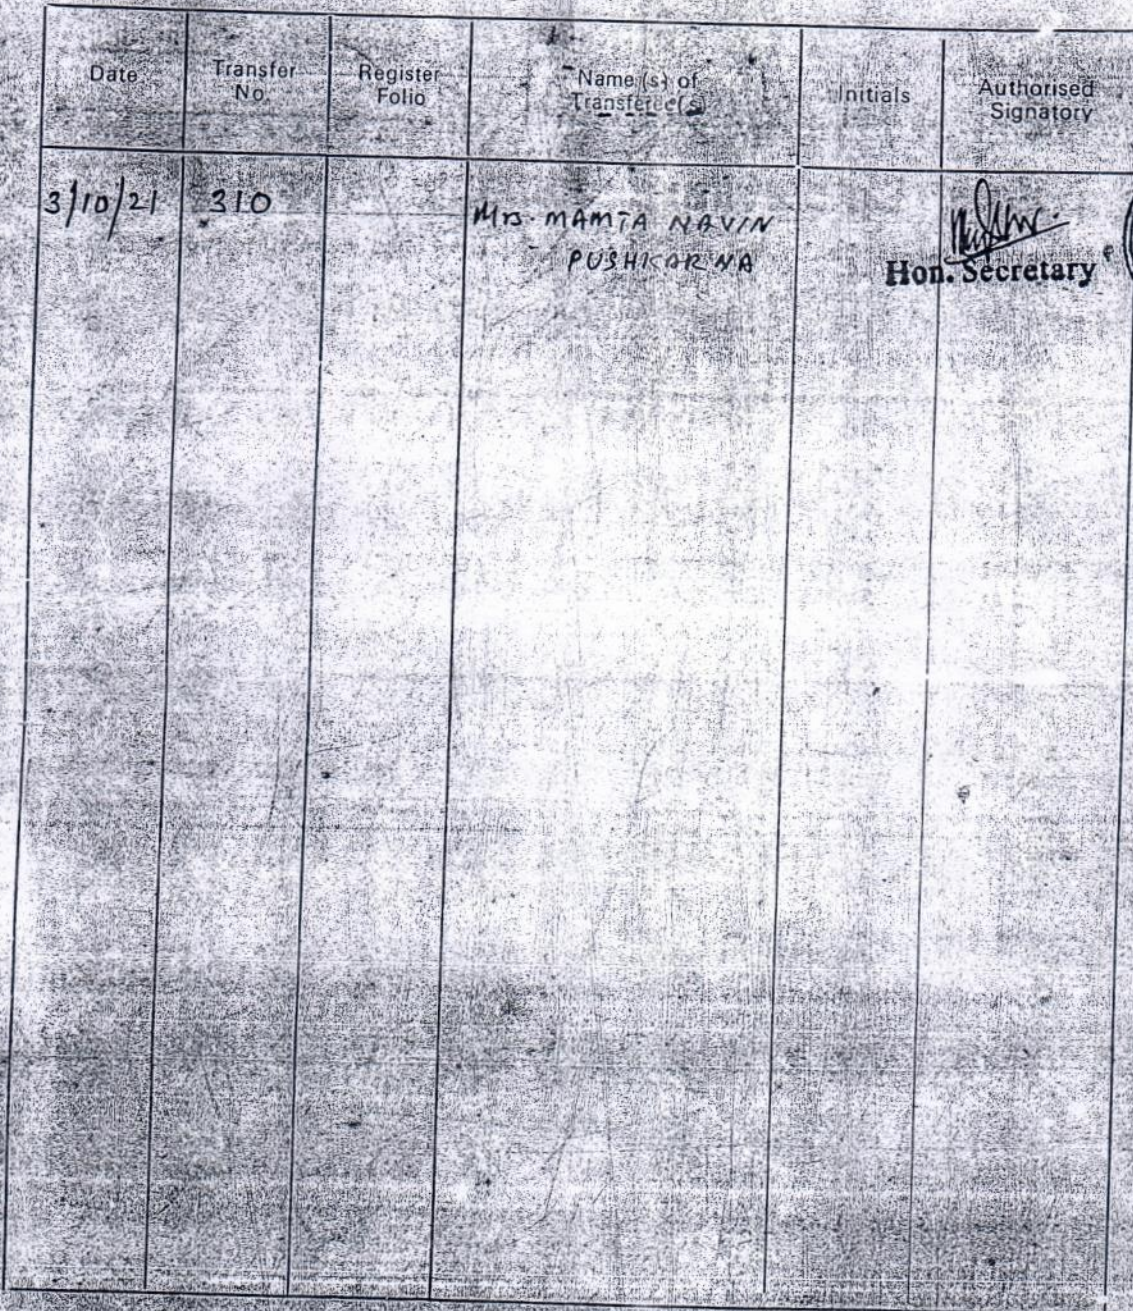 Date
Transfer
No.
Register
Folio
Name (s) of
Transferee(s)
Initials
Authorised
Signatory
3/10/21
310
Mrs. MAMTA NAVIN
PUSHKARNA
Hon. Secretary